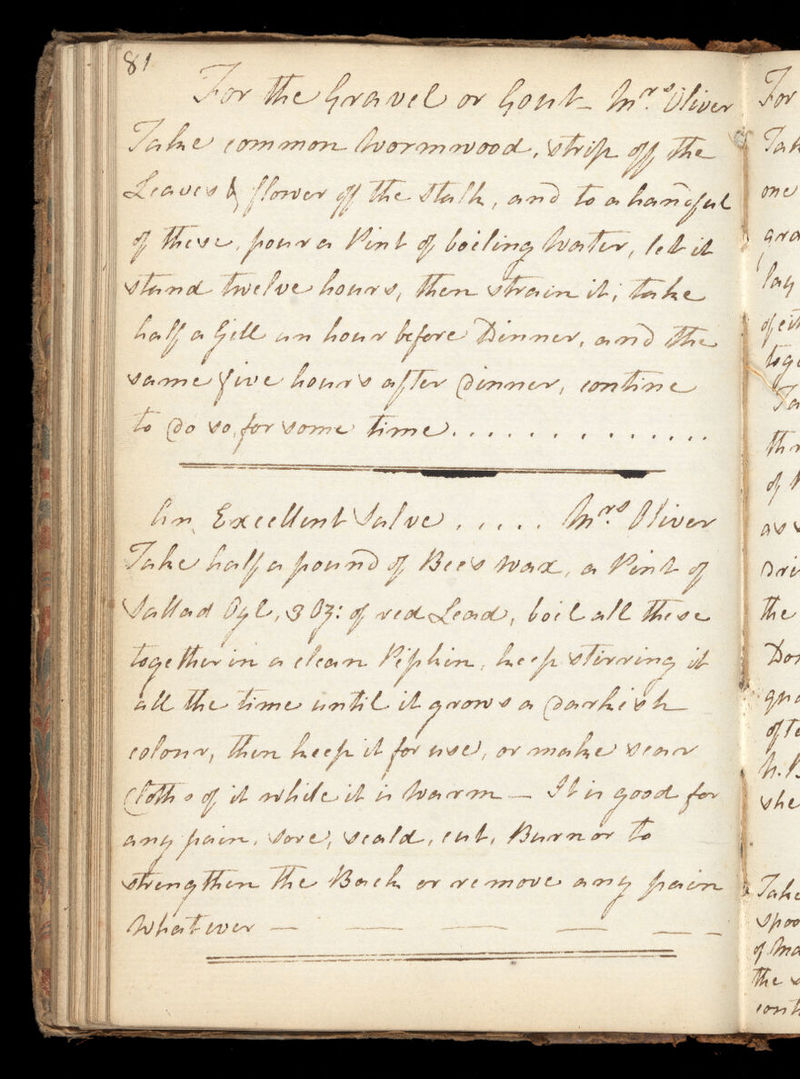 81
For the Gravel or Gout - Mrs. Oliver
Take common Wormwood, strip off the
Leaves & flower off the Stalk, and to a handful
of these, pour a Pint of boiling Water, let it
stand twelve hours, then strain it; take
half a Gill an hour before Dinner, and the
same five hours after Dinner, contine
to do so, for some time..............
An Excellent Salve ..... Mrs. Oliver
Take half a pound of Bees Wax, a Pint of
Sallad Oyl, 3 Oz: of red Lead, boil all these
together in a clean Pipkin, keep stirring it
all the time until it grows a Darkish
colour, then keep it for use, or make sear
Cloths of it while it is Warm — It is good for
any pain, sore, scald, cut, Burn or to
strengthen the Back or remove any pain
Whatever — — — — — -
For
Take
one
lay
of eit
toge
of
as
the
she
Take
Spoo
of
the
cont